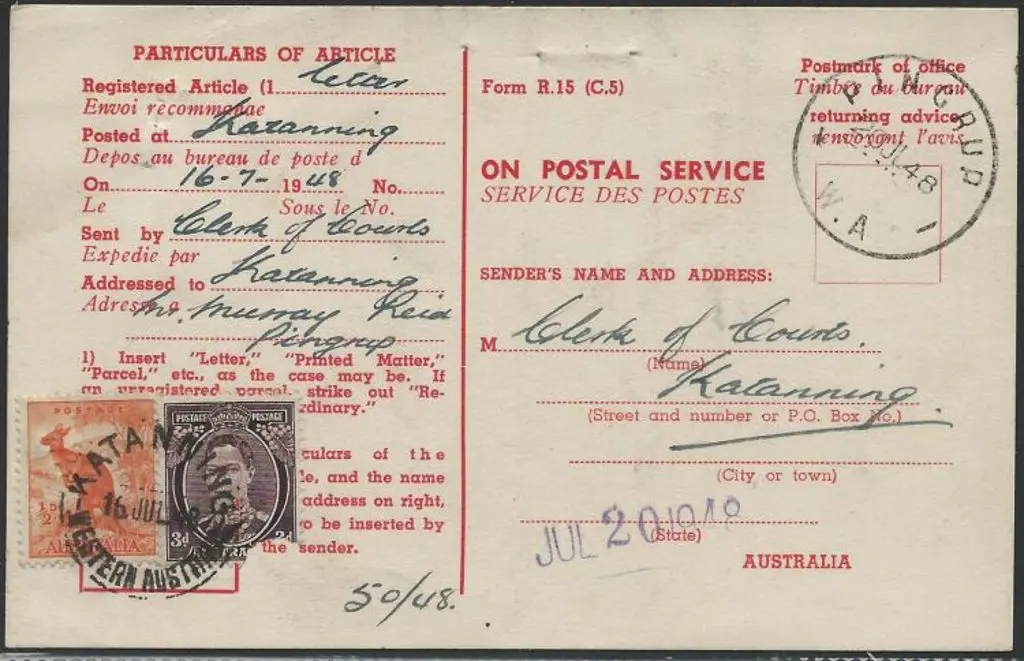 PARTICULARS OF ARTICLE
Registered Article (1 letter
Envoi recommandae
Posted at Katanning
Depos au bureau de poste d
On 16-7- 1948 No.
Le Sous le No.
Sent by Clerk of Courts
Expedie par Katanning
Addressed to
Adresse a Mr. Murray Reid
Pingrup
1) Insert "Letter," "Printed Matter,"
"Parcel," etc., as the case may be. If
an unregistered parcel, strike out "Re-
rdinary."
culars of the
le, and the name
address on right,
to be inserted by
the sender.
POSTAGE
½D
AUSTRALIA
POSTAGE POSTAGE
3d 3d
KATANNING
16 JUL 48
WESTERN AUSTRALIA
50/48.
Form R.15 (C.5)
ON POSTAL SERVICE
SERVICE DES POSTES
Postmark of office
Timbre du bureau
returning advice
renvoyant l'avis
PINGRUP
20 JL 48
W.A
SENDER'S NAME AND ADDRESS:
M Clerk of Courts.
(Name)
Katanning.
(Street and number or P.O. Box No.)
(City or town)
JUL 20 1948
(State)
AUSTRALIA